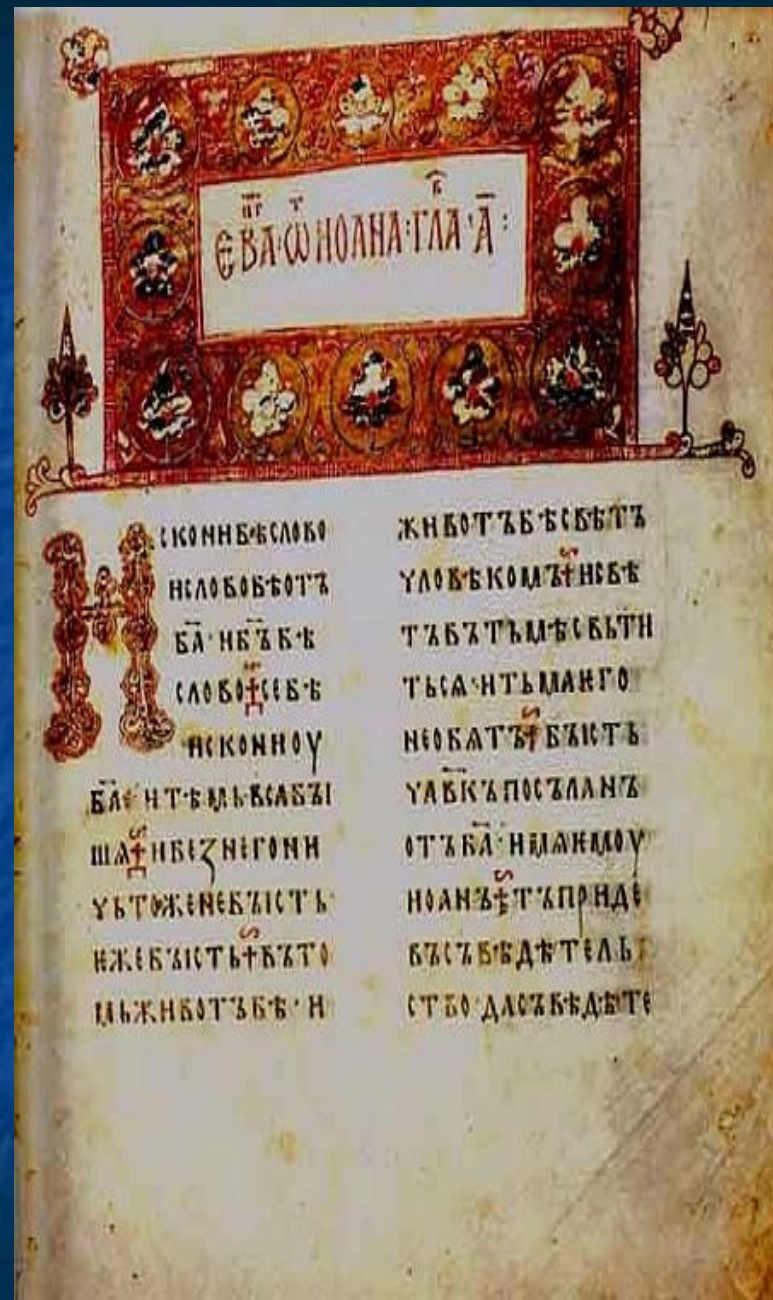 ЕВА·Ѿ ИОАНА·ГЛА·А҃:
ИСКОНИБѢСЛОВО
ИСЛОВОБѢОТЪ
БА҃·ИБЪ҃БѢ
СЛОВО СЕБѢ
ИСКОНИОУ
БА҃·ИТѢМЬВСꙖБЫ
ШѦ ИБЕЗНЕГОНИ
ЧЬТОЖЕНЕБЫСТЬ·
ѤЖЕБЫСТЬ ВЪТО
МЬЖИВОТЪБѢ·И
ЖИВОТЪБѢСВѢТЪ
ЧЛОВѢКОМЪ ИСВѢ
ТЪВЪТЬМѢСВЬТИ
ТЬСѦ·ИТЬМАѤГО
НЕОБѦТЪ БЫСТЬ
ЧЛВ҃КЪПОСЪЛАНЪ
ОТЪБА҃·ИМѦѤМОУ
ИОАНЪ ТЪПРИДЕ
ВЪСЪВѢДѢТЕЛЬ
СТВО·ДАСЪВѢДѢТЕ